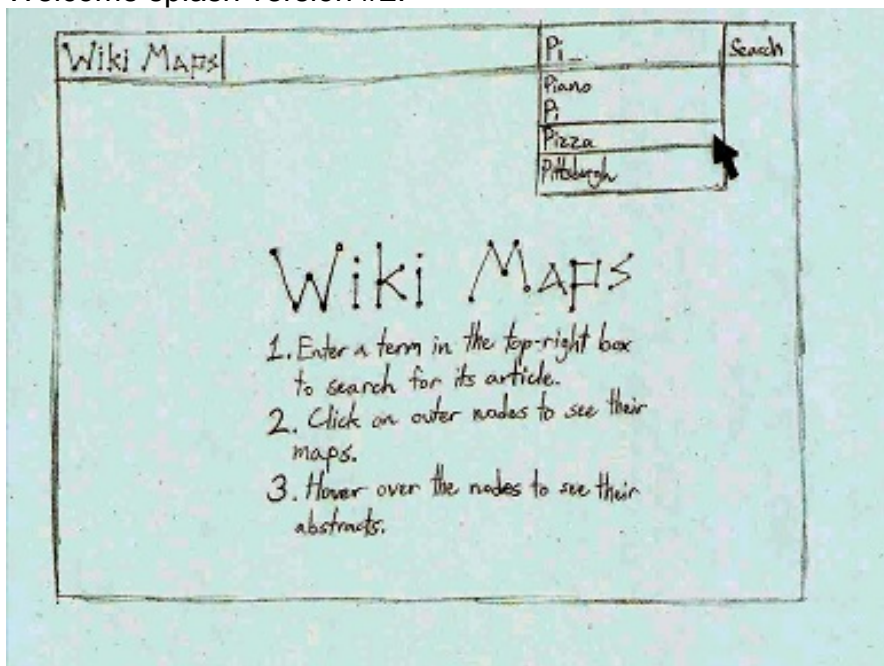 Wiki Maps
Pi_
Search
Piano
Pi
Pizza
Pittsburgh
Wiki Maps
1. Enter a term in the top-right box
to search for its article.
2. Click on outer nodes to see their
maps.
3. Hover over the nodes to see their
abstracts.